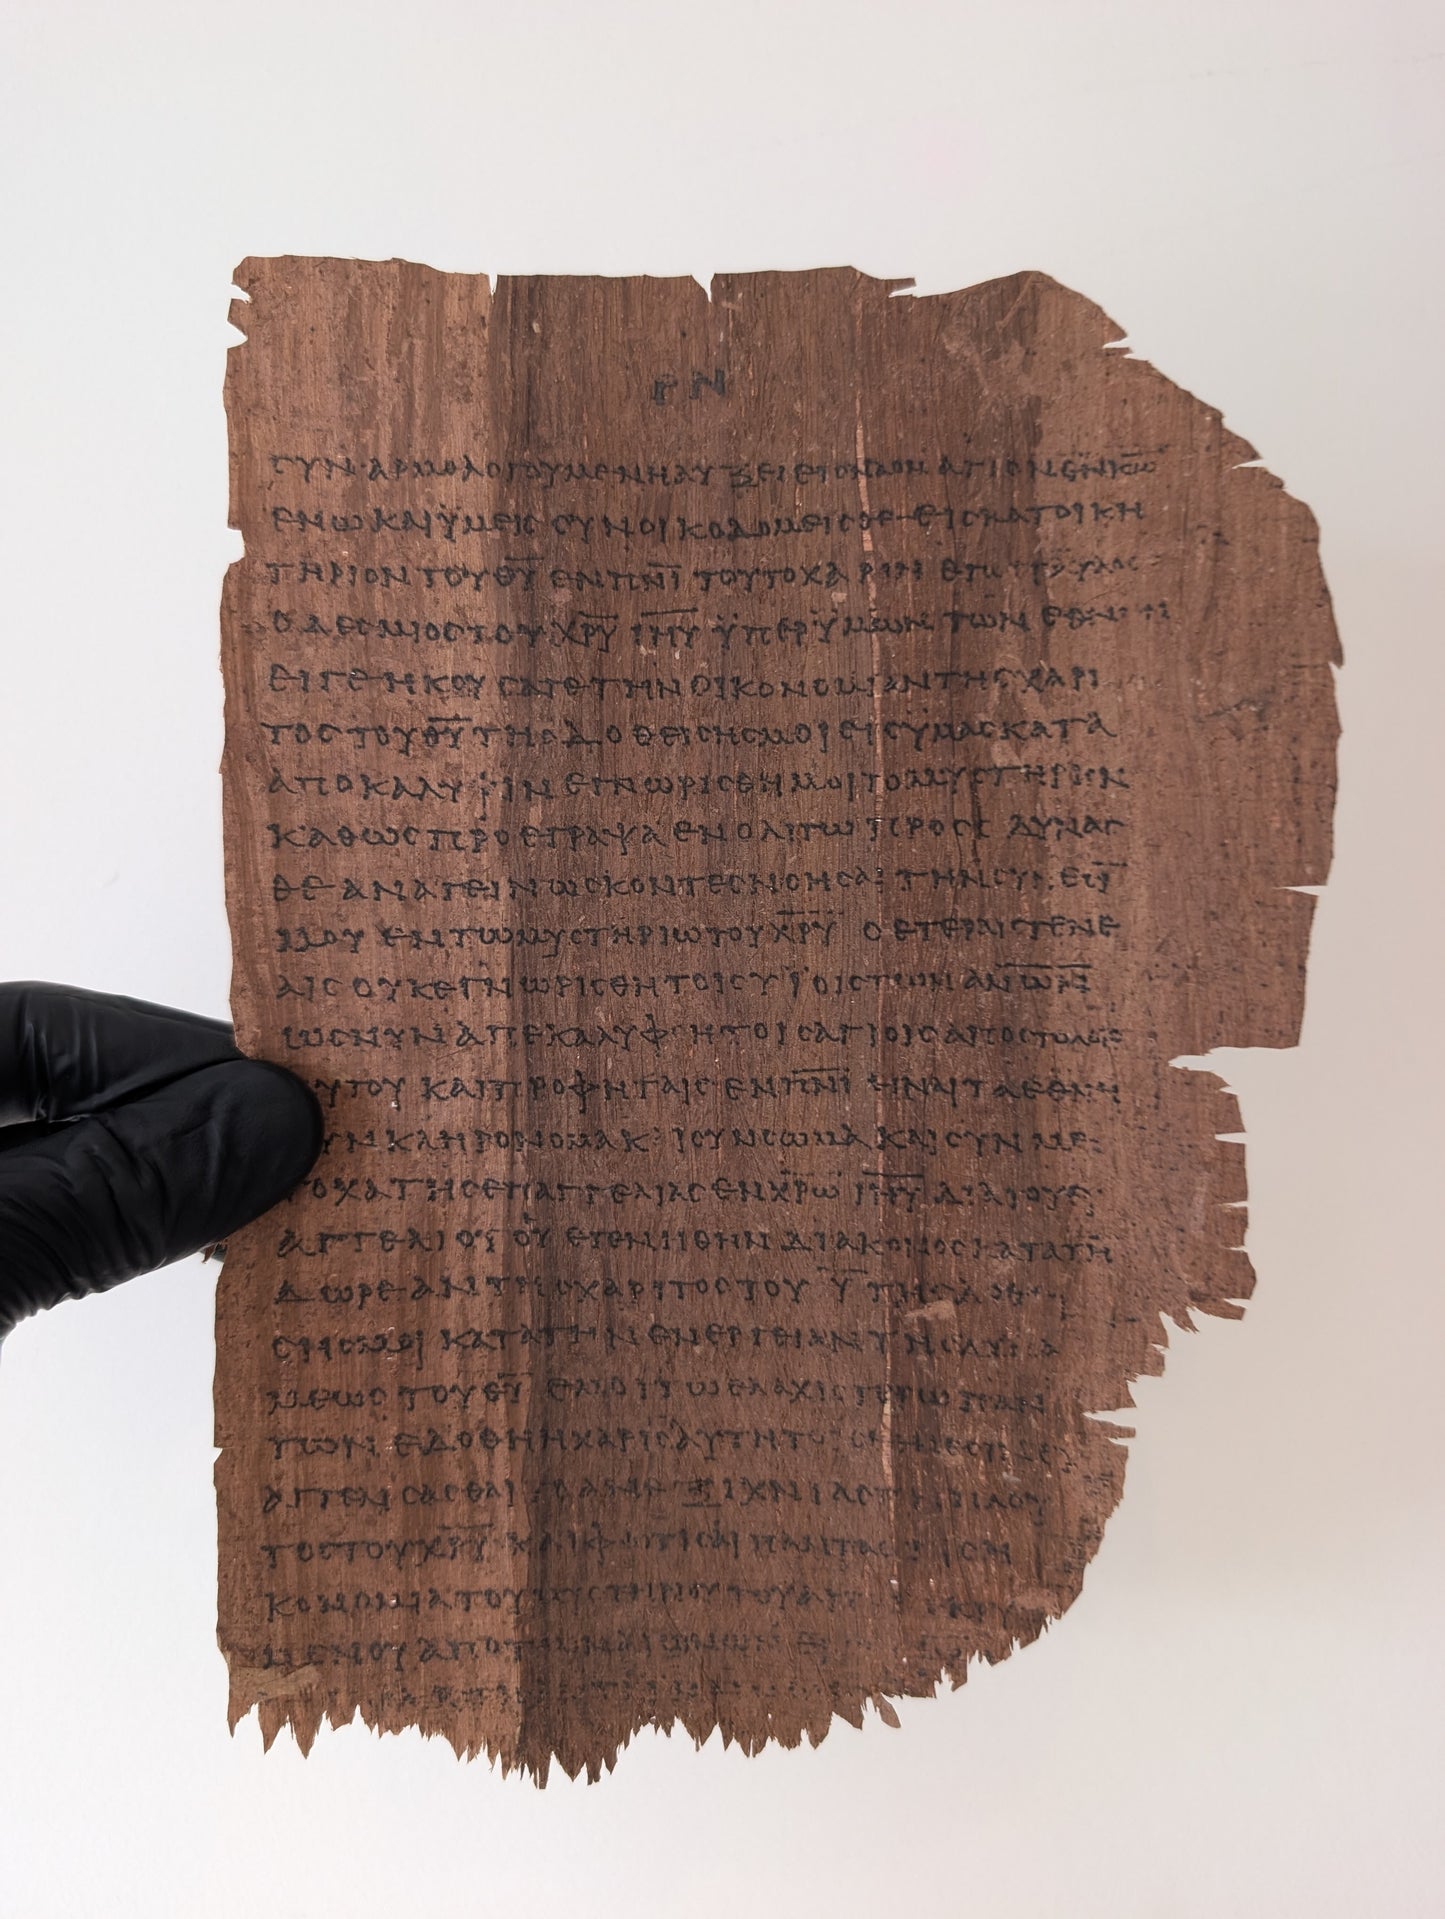 ΡΝ
ϹΥΝΑΡΜΟΛΟΓΟΥΜΕΝΗΑΥΞΕΙΕΙϹΝΑΟΝ ΑΓΙΟΝΕΝΚ̅Ω̅
ΕΝΩΚΑΙΫΜΕΙϹ ϹΥΝΟΙΚΟΔΟΜΕΙϹΘΕ ΕΙϹΚΑΤΟΙΚΗ
ΤΗΡΙΟΝΤΟΥΘ̅Υ̅ ΕΝΠ̅Ν̅Ι̅ ΤΟΥΤΟΧΑΡΙΝ
ΟΔΕϹΜΙΟϹΤΟΥΧ̅Ρ̅Υ̅ Ι̅Η̅Υ̅ ΫΠΕΡΫΜΩΝ ΤΩΝ ΕΘΝ
ΕΙΓΕΗΚΟΥϹΑΤΕΤΗΝΟΙΚΟΝΟΜΙΑΝΤΗϹΧΑΡΙ
ΤΟϹΤΟΥΘ̅Υ̅ΤΗϹΔΟΘΕΙϹΗϹΜΟΙΕΙϹΥΜΑϹΚΑΤΑ
ΑΠΟΚΑΛΥΨΙΝΕΓΝΩΡΙϹΘΗΜΟΙΤΟΜΥϹΤΗΡΙΟΝ
ΚΑΘΩϹΠΡΟΕΓΡΑΨΑΕΝΟΛΙΓΩ ΠΡΟϹΟ ΔΥΝΑϹ
ΘΕΑΝΑΓΕΙΝΩϹΚΟΝΤΕϹΝΟΗϹΑΙ ΤΗΝϹΥΝΕϹΙ̅
ΜΟΥ ΕΝΤΩΜΥϹΤΗΡΙΩΤΟΥΧ̅Ρ̅Υ̅ ΟΕΤΕΡΑΙϹΓΕΝΕ
ΑΙϹΟΥΚΕΓΝΩΡΙϹΘΗΤΟΙϹΥΪΟΙϹΤΩΝΑΝ̅Ω̅Ν̅
ΩϹΝΥΝΑΠΕΚΑΛΥΦΘΗΤΟΙϹΑΓΙΟΙϹΑΠΟϹΤΟΛΟΙϹ
ΥΤΟΥ ΚΑΙΠΡΟΦΗΤΑΙϹ ΕΝΠ̅Ν̅Ι̅ ΕΙΝΑΙΤΑΕΘΝΗ
ΥΝΚΛΗΡΟΝΟΜΑΚΑΙϹΥΝϹΩΜΑΚΑΙϹΥΝΜΕ
ΤΟΧΑΤΗϹΕΠΑΓΓΕΛΙΑϹΕΝΧ̅Ρ̅Ω̅ Ι̅Η̅Υ̅ ΔΙΑΤΟΥΕΥ
ΑΓΓΕΛΙΟΥ ΟΥ ΕΓΕΝΗΘΗΝ ΔΙΑΚΟΝΟϹΚΑΤΑΤΗ
ΔΩΡΕΑΝΤΗϹΧΑΡΙΤΟϹΤΟΥ Υ̅ ΤΗϹΔΟΘΕΙ
ϹΗϹΜΟΙ ΚΑΤΑΤΗΝΕΝΕΡΓΕΙΑΝΤΗϹΔΥΝΑ
ΜΕΩϹΑΥΤΟΥ ΕΜΟΙΤΩΕΛΑΧΙϹΤΟΤΕΡΩΠΑΝ
ΤΩΝ ΕΔΟΘΗΗΧΑΡΙϹΑΥΤΗΤΟΙϹ
ΑΓΓΕΛΙϹΑϹΘΑΙΤΟΑΝΕΞΙΧΝΙΑϹΤΟΝΠΛΟΥ
ΤΟϹΤΟΥΧ̅Ρ̅Υ̅ ΚΑΙΦΩΤΙϹΑΙΠΑΝΤΑϹ
ΚΟΝΟΜΙΑΤΟΥΜΥϹΤΗΡΙΟΥΤΟΥΑΠΟΚΕΚΡΥ
ΜΕΝΟΥΑΠΟΤΩΝΑΙΩΝΩΝ